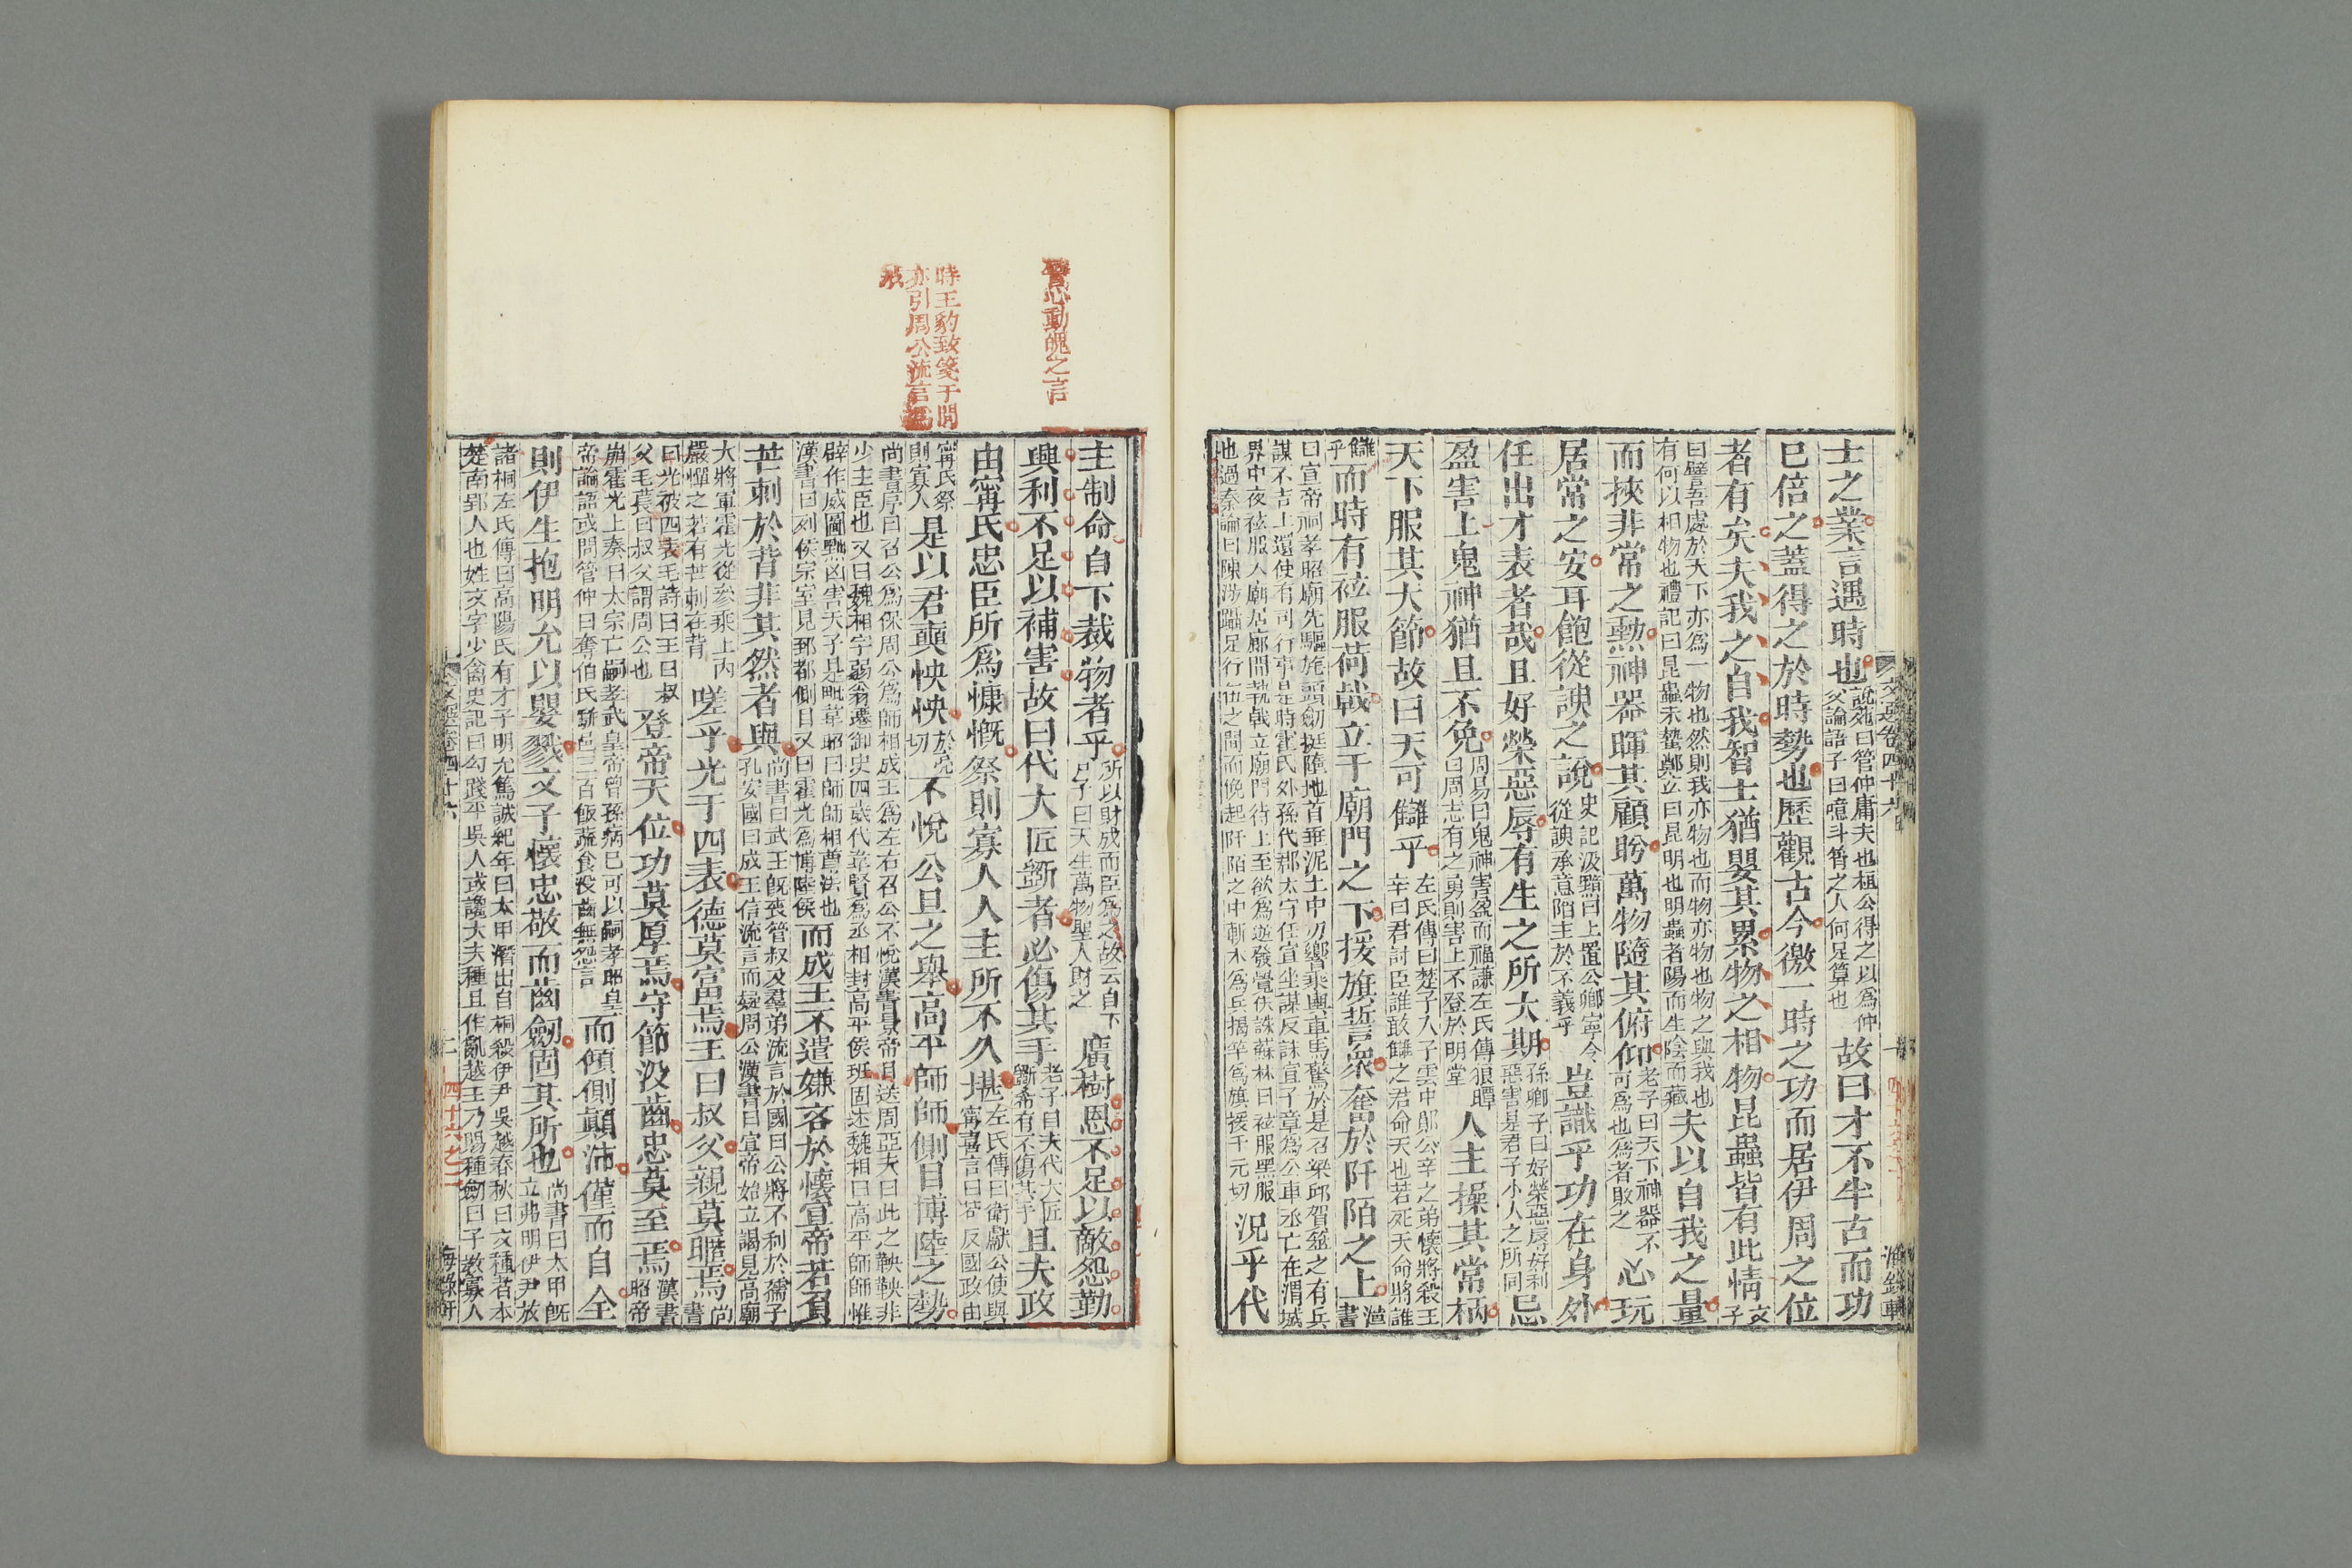 文選卷四十六
二
海錄軒
士之業言遇時也說苑曰管仲庸夫也桓公得之以爲仲父論語子曰噫斗筲之人何足算也故曰才不半古而功
已倍之蓋得之於時勢也歷觀古今徼一時之功而居伊周之位
者有矣夫我之自我智士猶嬰其累物之相物昆蟲皆有此情文子
曰譬吾處於天下亦爲一物也然則我亦物也而物亦物也物之與我也有何以相物也禮記曰昆蟲未蟄鄭玄曰昆明也明蟲者陽而生陰而藏夫以自我之量
而挾非常之勳神器暉其顧盼萬物隨其俯仰老子曰天下神器不可爲也爲者敗之心玩
居常之安耳飽從諛之說史記汲黯曰上置公卿寧令從諛承意陷主於不義乎豈識乎功在身外
任出才表者哉且好榮惡辱有生之所大期孫卿子曰好榮惡辱好利惡害是君子小人之所同忌
盈害上鬼神猶且不免周易曰鬼神害盈而福謙左氏傳狼瞫曰周志有之勇則害上不登於明堂人主操其常柄
天下服其大節故曰天可讎乎左氏傳曰楚子入于雲中鄖公辛之弟懷將殺王辛曰君討臣誰敢讎之君命天也若死天命將誰
讎乎而時有袨服荷戟立于廟門之下援旗誓衆奮於阡陌之上漢書
曰宣帝祠孝昭廟先驅旄頭劒挺墮地首垂泥土中刃響乘輿車馬驚於是召梁邱賀筮之有兵謀不吉上還使有司行事是時霍氏外孫代郡太守任宣坐謀反誅宣子章爲公車丞亡在渭城
界中夜袨服入廟居廊間執戟立廟門待上至欲爲逆發覺伏誅蘇林曰袨服黑服也過秦論曰陳涉躡足行伍之間而俛起阡陌之中斬木爲兵揭竿爲旗援于元切況乎代
主制命自下裁物者乎所以財成而臣爲之故云自下呂子曰天生萬物聖人財之廣樹恩不足以敵怨勤
興利不足以補害故曰代大匠斲者必傷其手老子曰夫代大匠斲希有不傷其手且夫政
由甯氏忠臣所爲慷慨祭則寡人人主所不久堪左氏傳曰衛獻公使與甯喜言曰苟反國政由
甯氏祭則寡人是以君奭怏怏於亮切不悅公旦之舉高平師師側目博陸之勢
尚書序曰召公爲保周公爲師相成王爲左右召公不悅漢書景帝目送周亞夫曰此之鞅鞅非少主臣也又曰魏相字弱翁遷御史四歲代韋賢爲丞相封高平侯班固述魏相曰高平師師惟
辟作威圖黜凶害天子是毗韋昭曰師師相尊法也漢書曰列侯宗室見郅都側目又曰霍光爲博陸侯而成王不遣嫌吝於懷宣帝若負
芒刺於背非其然者與尚書曰武王旣喪管叔及羣弟流言於國曰公將不利於孺子孔安國曰成王信流言而疑周公漢書曰宣帝始立謁見高廟
大將軍霍光從參乘上內嚴憚之若有芒刺在背嗟乎光于四表德莫富焉王曰叔父親莫暱焉尚書
曰光被四表毛詩曰王曰叔父毛萇曰叔父謂周公也登帝天位功莫厚焉守節沒齒忠莫至焉漢書昭帝
崩霍光上奏曰太宗亡嗣孝武皇帝曾孫病已可以嗣孝昭皇帝論語或問管仲曰奪伯氏騈邑三百飯蔬食沒齒無怨言而傾側顚沛僅而自全
則伊生抱明允以嬰戮文子懷忠敬而齒劒固其所也尚書曰太甲旣立弗明伊尹放
諸桐左氏傳曰高陽氏有才子明允篤誠紀年曰太甲潛出自桐殺伊尹吳越春秋曰文種者本楚南郢人也姓文字少禽史記曰勾踐平吳人或讒大夫種且作亂越王乃賜種劒曰子敎寡人
文選卷四十六
二
海錄軒
四十六之二
警心動魄之言
時王豹致箋于冏
亦引周公流言爲